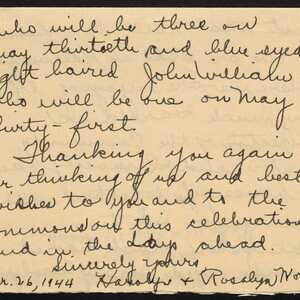 who will be three on
may thirtieth and blue eyed
ght haired John William
ho will be one on May
irty-first.
Thanking you again
r thinking of us and best
ishes to you and to the
mmons on this celebration
nd in the days ahead.
Sincerely yours
r. 26, 1944 Harolyn & Rosalyn Wo